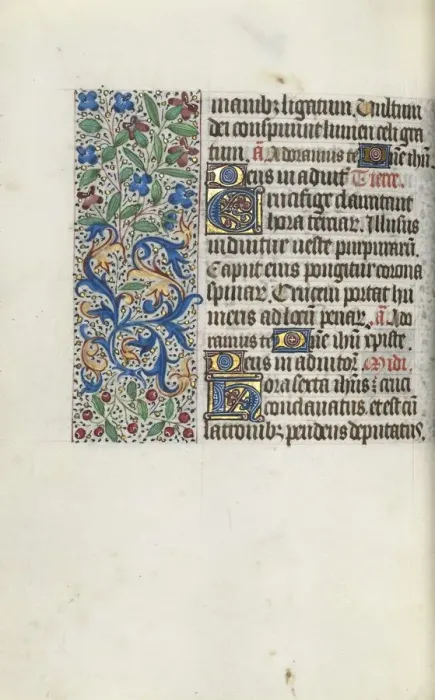 manibꝫ ligatum. Vultum
dei conspuunt lumen celi gra
tum. a͂ Adoramus te Dn̄e ihū.
Deus in adiut᷑ Tierce.
Crucifige clamitant
hora terciar. Illusus
induitur ueste purpurarū.
Caput eius pongitur corona
spinar. Crucem portat hu
meris ad locū penar. a͂ Ado
ramus te Dn̄e ihū xp̄iste.
Deus in adiutoꝛ. Midi.
Hora sexta ihūs ē cruci
conclauatus. et est cū
latronibꝫ pendens deputatus.